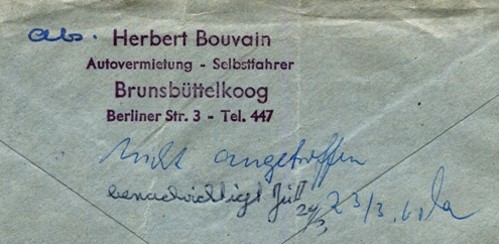 abs. Herbert Bouvain
Autovermietung - Selbstfahrer
Brunsbüttelkoog
Berliner Str. 3 - Tel. 447
Nicht angetroffen
benachrichtigt 23/3.